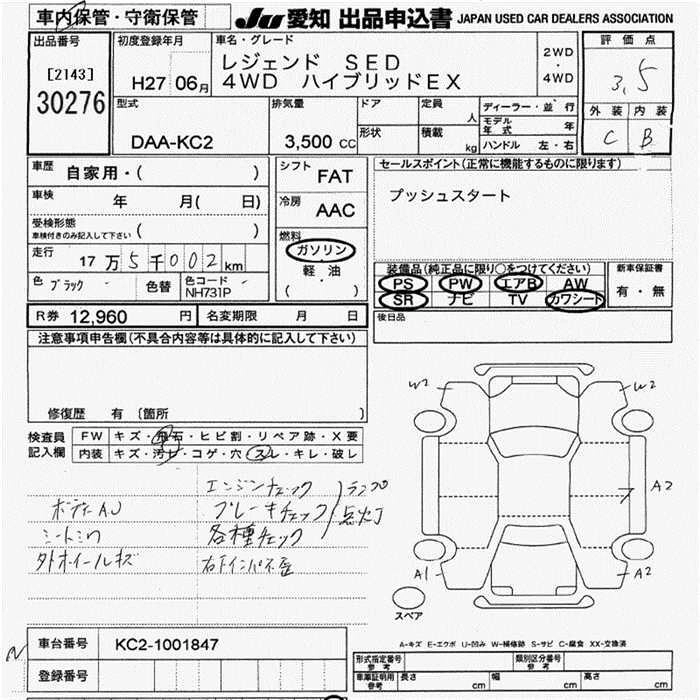 車内保管・守衛保管
JU 愛知 出品申込書 JAPAN USED CAR DEALERS ASSOCIATION
出品番号
[2143]
30276
初度登録年月
H27 06月
車名・グレード
レジェンド SED
4WD ハイブリッドEX
2WD
・
4WD
評価点
3.5
外装 内装
C B
型式
DAA-KC2
排気量
3,500 cc
ドア
形状
定員
人
積載
kg
ディーラー・並行
モデル年式 年
ハンドル 左・右
車歴 自家用・( )
車検 年 月( 日)
受検形態
車検付きのみ記入して下さい ( )
走行 17万5千002km
色 ブラック 色替 色コード NH731P
シフト FAT
冷房 AAC
燃料
ガソリン
軽・油
( )
セールスポイント(正常に機能するものに限ります)
プッシュスタート
装備品(純正品に限り○をつけてください)
PS PW エアB AW
SR ナビ TV カワシート
新車保証書
有・無
後日品
R券 12,960 円 名変期限 月 日
注意事項申告欄(不具合内容等は具体的に記入して下さい)
修復歴 有〔箇所 〕
検査員
記入欄
FW キズ・飛石・ヒビ割・リペア跡・X要
内装 キズ・汚レ・コゲ・穴・スレ・キレ・破レ
エンジンチェック
ブレーキチェック
各種チェック
ランプ
点灯
ボディAU
外ホイールキズ
W2 W2
A2
A1 A2
スペア
A-キズ E-エクボ U-凹み W-補修跡 S-サビ C-腐食 XX-交換済
車台番号 KC2-1001847
登録番号
形式指定番号 参考
類別区分番号 参考
車庫証明用 参考 長さ cm 幅 cm 高さ cm